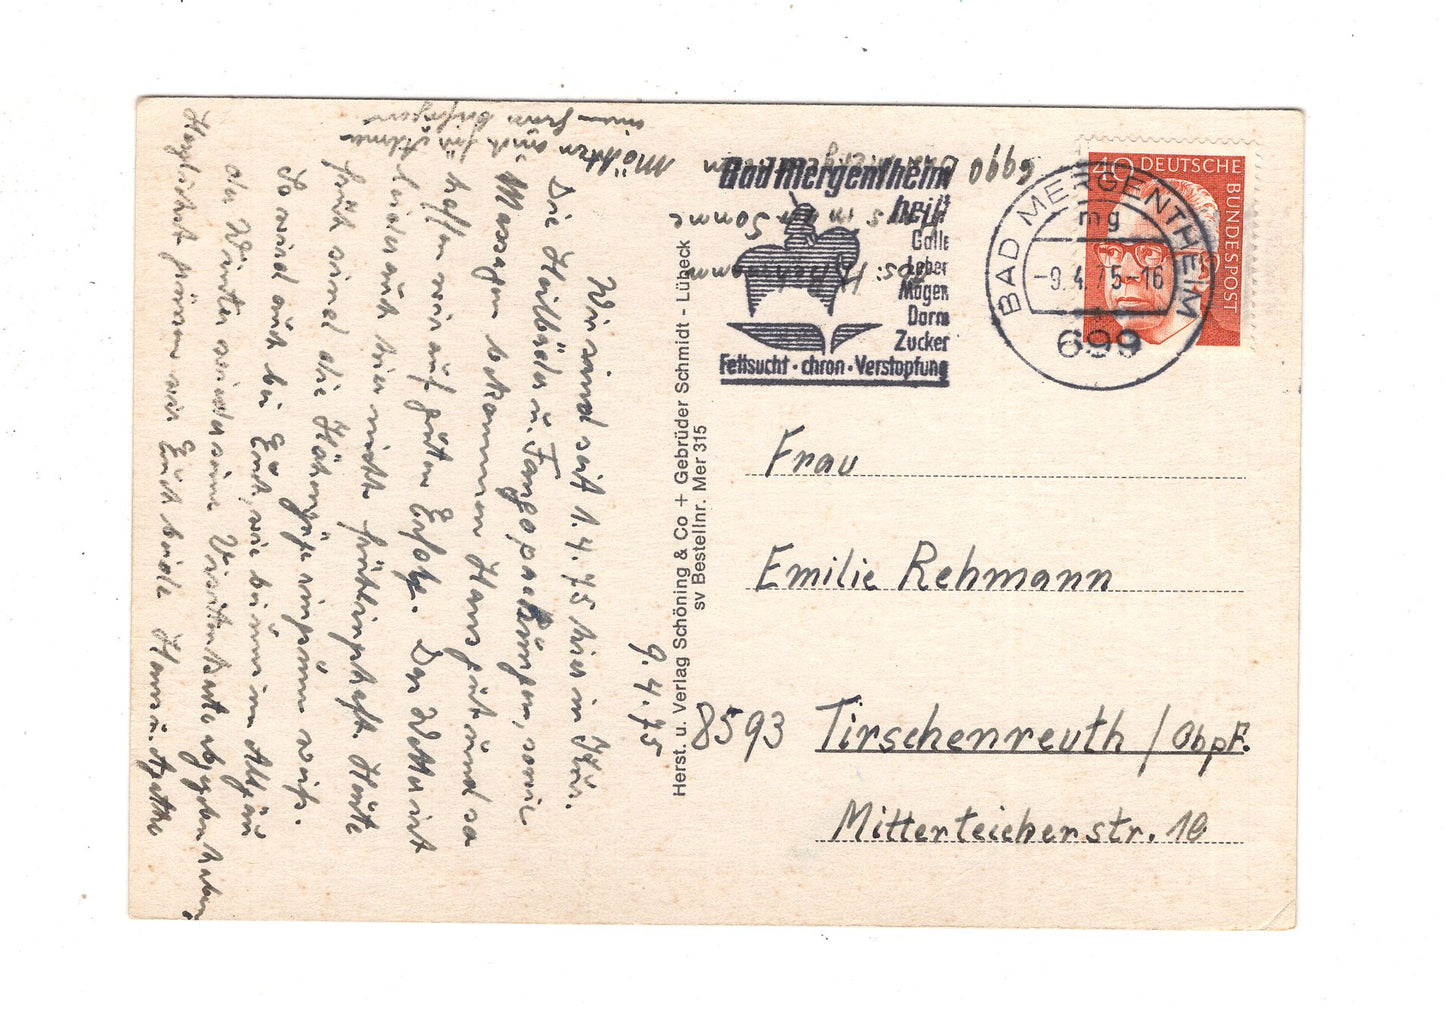 9.4.75
Wir sind seit 1.4.75 hier in Kur.
Die Heilbäder u. Fangopackungen, sowie
Massagen bekommen Hans gut und so
hoffen wir auf guten Erfolg. Das Wetter ist
leider auch hier nicht frühlingshaft. Heute
früh sind die Höhenzüge ringsum weiß.
So wird auch bei Euch, wie bei uns im Allgäu
der Winter wieder seine Visitenkarte abgegeben haben
Herzlichst grüssen wir Euch beide Hans u. Agathe
Möchten auch für
Abs: H. Rehmann
"in Sonne
6990 Bad Mergentheim
Bad Mergentheim
heilt
Galle
Leber
Magen
Darm
Zucker
Fettsucht · chron · Verstopfung
BAD MERGENTHEIM
mg
-9.4.75-16
699
40 DEUTSCHE
BUNDESPOST
Herst. u. Verlag Schöning & Co + Gebrüder Schmidt - Lübeck
sv Bestellnr. Mer 315
Frau
Emilie Rehmann
8593 Tirschenreuth / Obpf.
Mitterteicherstr. 10